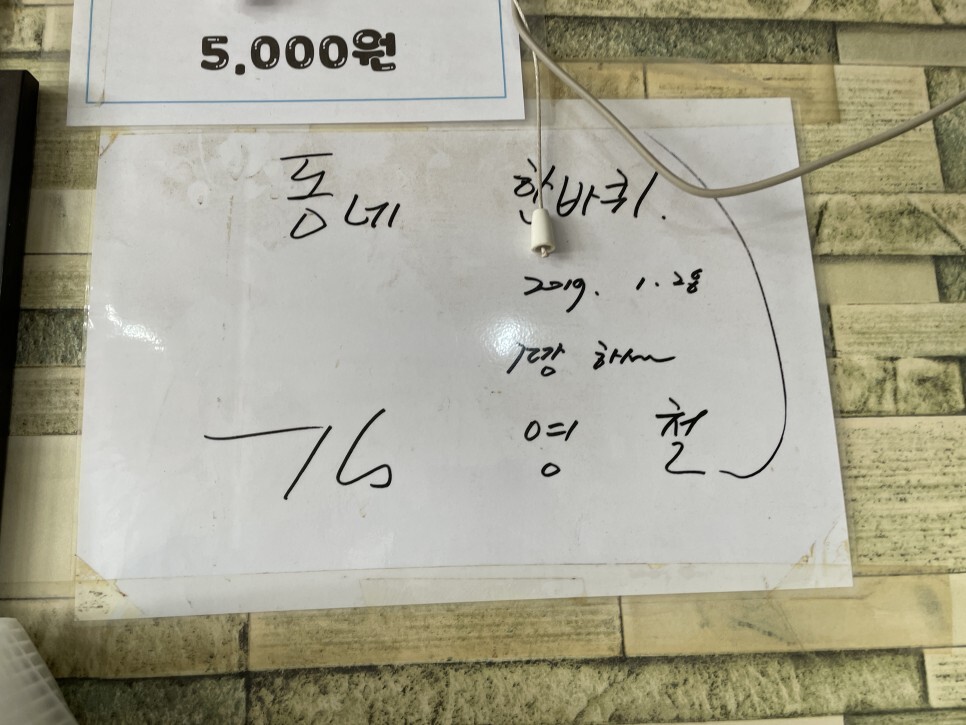 5.000원
동네 한바퀴.
2019. 1. 28
김영철